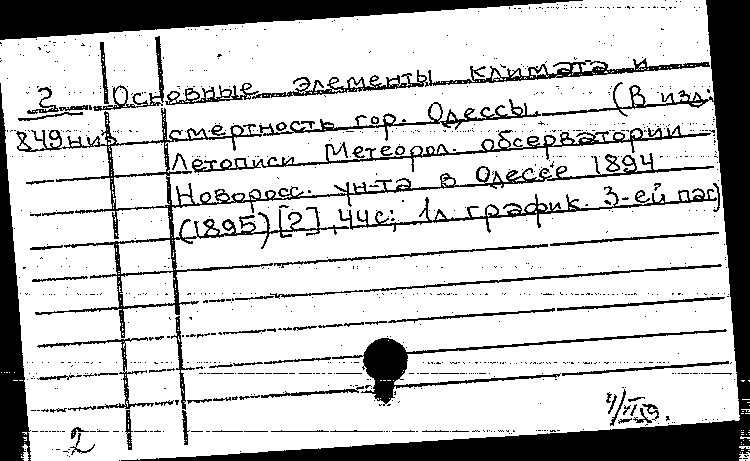 2 Основные элементы климата и
849низ смертность гор. Одессы. (В изд:
Летописи Метеорол. обсерватории
Новоросс. ун-та в Одессе 1894
(1895) [2], 44с; 1л. график. 3-ей паг)
2